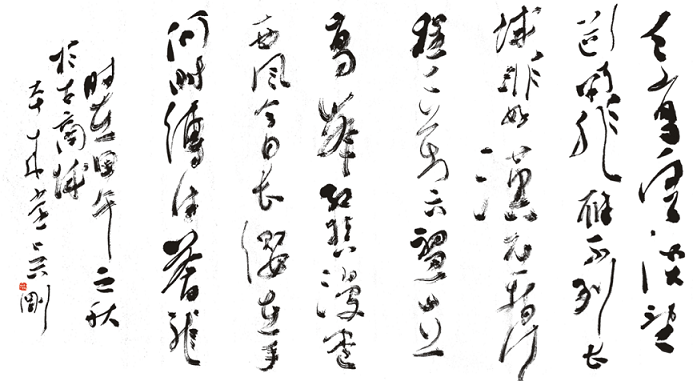 天高雲淡望
断南飛雁不到长
城非好漢屈指行
程二万六盤山上
高峰红旗漫卷
西风今日长缨在手
何时缚住苍龙
时在甲午之秋
於古商城